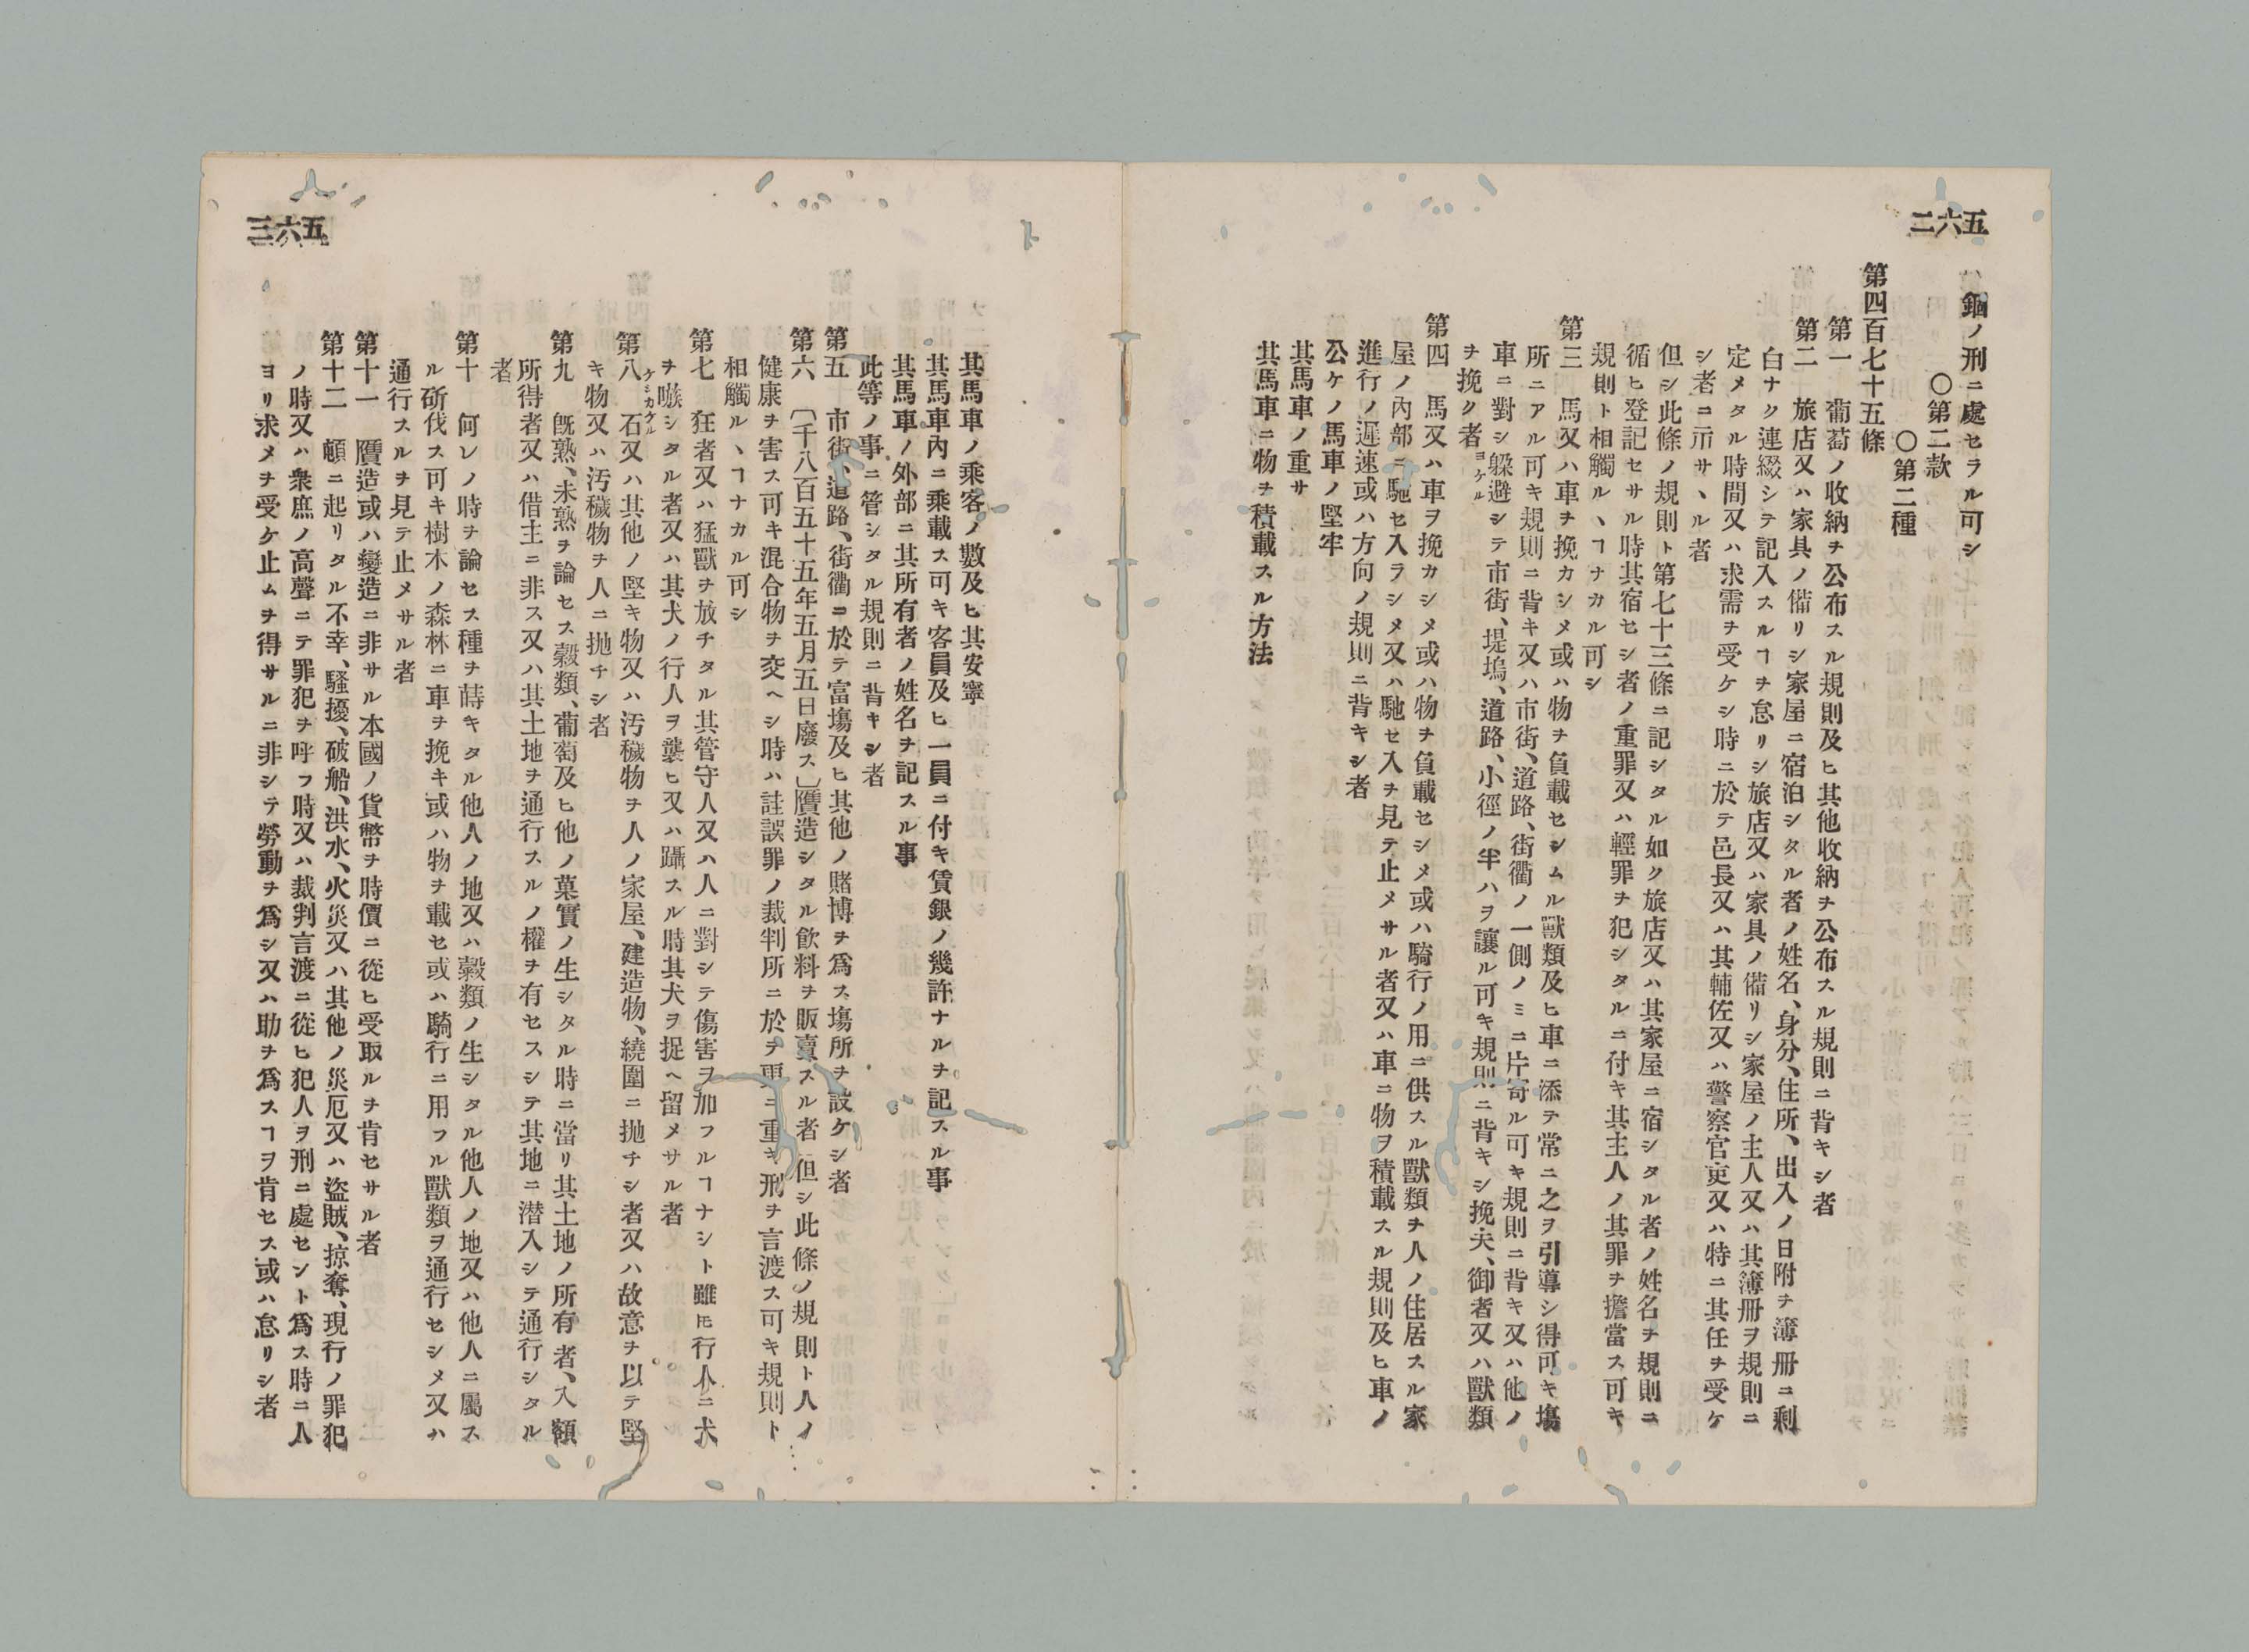 五六二
錮ノ刑ニ處セラル可シ
〇第二款
〇第二種
第四百七十五條
第一 葡萄ノ收納ヲ公布スル規則及ヒ其他收納ヲ公布スル規則ニ背キシ者
第二 旅店又ハ家具ノ備リシ家屋ニ宿泊シタル者ノ姓名、身分、住所、出入ノ日附ヲ簿册ニ剩
白ナク連綴シテ記入スルヿヲ怠リシ旅店又ハ家具ノ備リシ家屋ノ主人又ハ其簿册ヲ規則ニ
定メタル時間又ハ求需ヲ受ケシ時ニ於テ邑長又ハ其輔佐又ハ警察官吏又ハ特ニ其任ヲ受ケ
シ者ニ示サヽル者
但シ此條ノ規則ト第七十三條ニ記シタル如ク旅店又ハ其家屋ニ宿シタル者ノ姓名ヲ規則ニ
循ヒ登記セサル時其宿セシ者ノ重罪又ハ輕罪ヲ犯シタルニ付キ其主人ノ其罪ヲ擔當ス可キ
規則ト相觸ルヽヿナカル可シ
第三 馬又ハ車ヲ挽カシメ或ハ物ヲ負載セシムル獸類及ヒ車ニ添テ常ニ之ヲ引導シ得可キ塲
所ニアル可キ規則ニ背キ又ハ市街、道路、街衢ノ一側ノミニ片寄ル可キ規則ニ背キ又ハ他ノ
車ニ對シ躱避シテ市街、堤塢、道路、小徑ノ半ハヲ讓ル可キ規則ニ背キシ挽夫、御者又ハ獸類
ヲ挽ク者
ヨケル
第四 馬又ハ車ヲ挽カシメ或ハ物ヲ負載セシメ或ハ騎行ノ用ニ供スル獸類ヲ人ノ住居スル家
屋ノ內部ニ馳セ入ラシメ又ハ馳セ入ヲ見テ止メサル者又ハ車ニ物ヲ積載スル規則及ヒ車ノ
進行ノ遲速或ハ方向ノ規則ニ背キシ者
公ケノ馬車ノ堅牢
其馬車ノ重サ
其馬車ニ物ヲ積載スル方法
五六三
其馬車ノ乘客ノ數及ヒ其安寧
其馬車內ニ乘載ス可キ客員及ヒ一員ニ付キ賃銀ノ幾許ナルヲ記スル事
其馬車ノ外部ニ其所有者ノ姓名ヲ記スル事
此等ノ事ニ管シタル規則ニ背キシ者
第五 市街、道路、街衢ニ於テ富塲及ヒ其他ノ賭博ヲ爲ス塲所ヲ設ケシ者
第六 〔千八百五十五年五月五日廢ス〕贋造シタル飮料ヲ販賣スル者 但シ此條ノ規則ト人ノ
健康ヲ害ス可キ混合物ヲ交ヘシ時ハ註誤罪ノ裁判所ニ於テ更ニ重キ刑ヲ言渡ス可キ規則ト
相觸ルヽヿナカル可シ
第七 狂者又ハ猛獸ヲ放チタル其管守人又ハ人ニ對シテ傷害ヲ加フルヿナシト雖𪜈行人ニ犬
ヲ嗾シタル者又ハ其犬ノ行人ヲ襲ヒ又ハ躡スル時其犬ヲ捉ヘ留メサル者
ケシカケル
第八 石又ハ其他ノ堅キ物又ハ汚穢物ヲ人ノ家屋、建造物、繞圍ニ抛チシ者又ハ故意ヲ以テ堅
キ物又ハ汚穢物ヲ人ニ抛チシ者
第九 旣熟、未熟ヲ論セス穀類、葡萄及ヒ他ノ菓實ノ生シタル時ニ當リ其土地ノ所有者、入額
所得者又ハ借主ニ非ス又ハ其土地ヲ通行スルノ權ヲ有セスシテ其地ニ潜入シテ通行シタル
者
第十 何レノ時ヲ論セス種ヲ蒔キタル他人ノ地又ハ穀類ノ生シタル他人ノ地又ハ他人ニ屬ス
ル斫伐ス可キ樹木ノ森林ニ車ヲ挽キ或ハ物ヲ載セ或ハ騎行ニ用フル獸類ヲ通行セシメ又ハ
通行スルヲ見テ止メサル者
第十一 贋造或ハ變造ニ非サル本國ノ貨幣ヲ時價ニ從ヒ受取ルヲ肯セサル者
第十二 頓ニ起リタル不幸、騷擾、破船、洪水、火災又ハ其他ノ災厄又ハ盜賊、掠奪、現行ノ罪犯
ノ時又ハ衆庶ノ高聲ニテ罪犯ヲ呼フ時又ハ裁判言渡ニ從ヒ犯人ヲ刑ニ處セント爲ス時ニ人
ヨリ求メヲ受ケ止ムヲ得サルニ非シテ勞動ヲ爲シ又ハ助ヲ爲スヿヲ肯セス或ハ怠リシ者